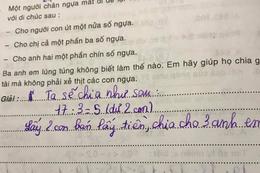 Một người chăn ngựa mất đi để lại
với di chúc sau :
– Cho người con út một nửa số ngựa.
– Cho chị cả một phần ba số ngựa.
– Cho anh hai một phần chín số ngựa.
Ba anh em lúng túng không biết làm thế nào. Em hãy giúp họ chia g
tài mà không phải xẻ thịt các con ngựa.
Giải : Ta sẽ chia như sau :
17 : 3 = 5 (dư 2 con)
Lấy 2 con bán lấy tiền, chia cho 3 anh em